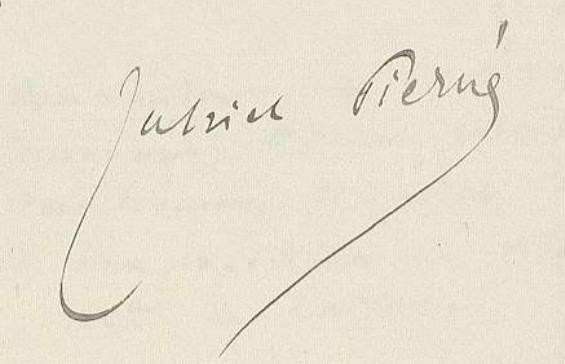 Gabriel Pierné